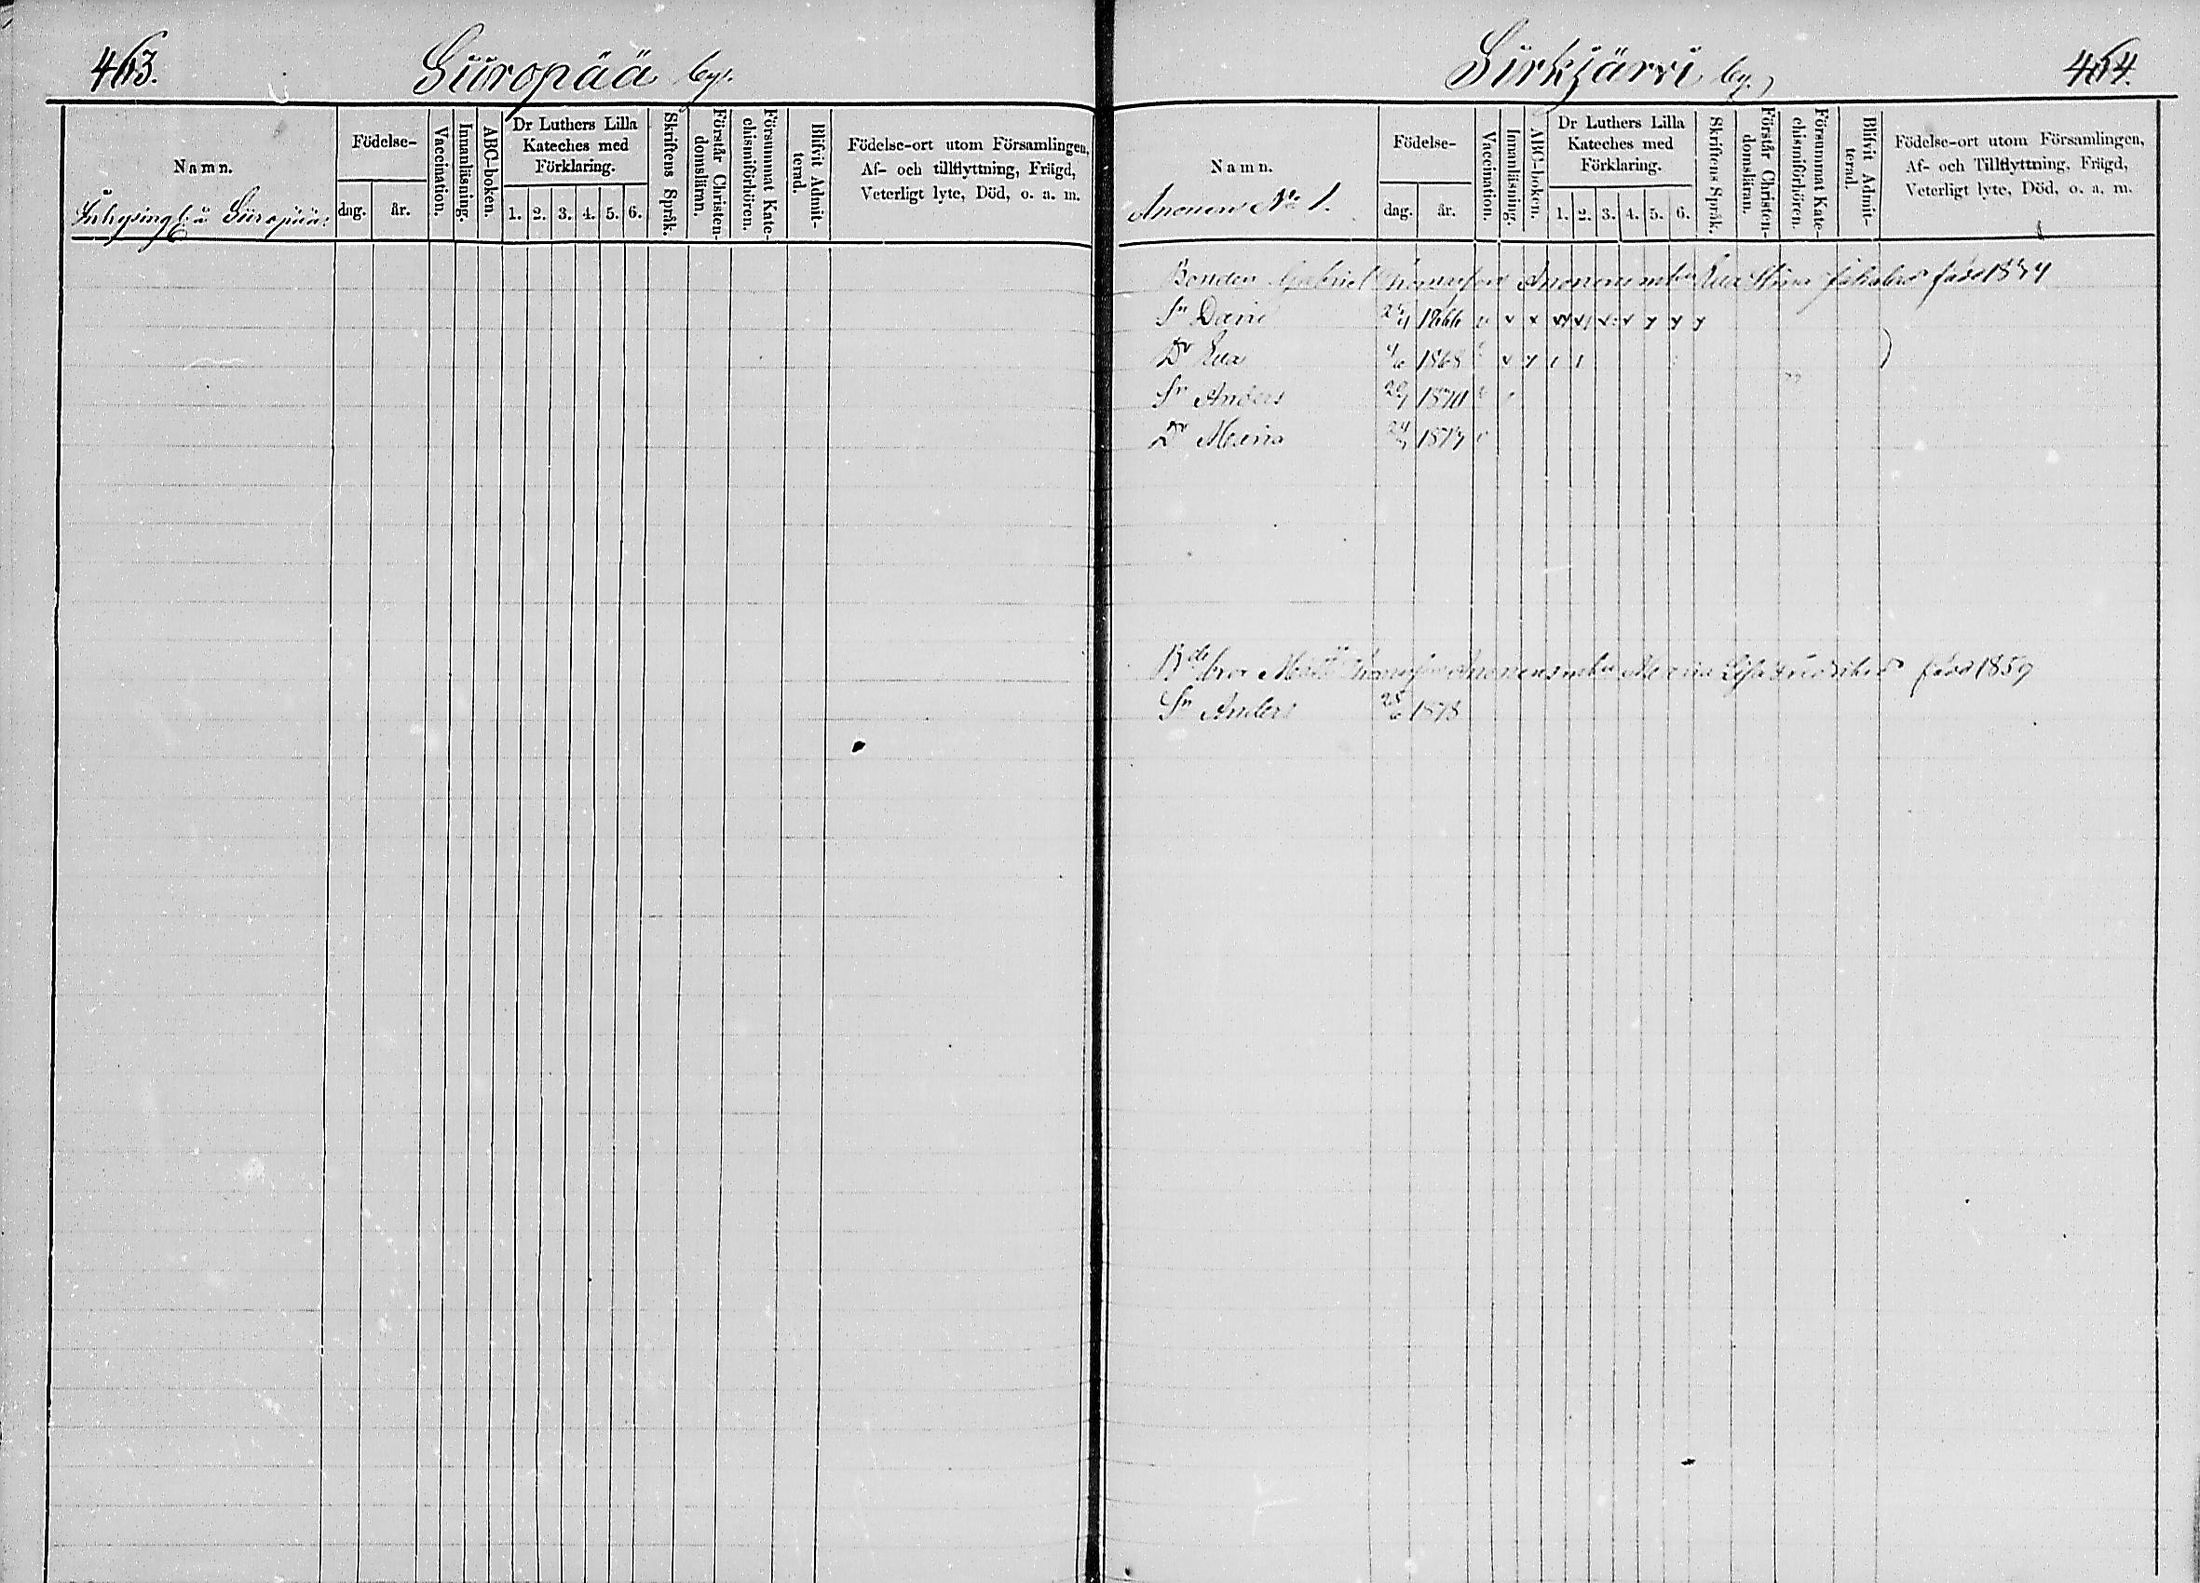 463.
Siiropää by.
Namn.
Inhysing å Siiropää:
Födelse-
dag.
år.
Vaccination.
Innanläsning.
ABC-boken.
Dr Luthers Lilla
Kateches med
Förklaring.
1. 2. 3. 4. 5. 6.
Skriftens Språk.
Förstår Christen-
domsläran.
Försummat Kate-
chismiförhören.
Blifvit Admit-
terad.
Födelse-ort utom Församlingen,
Af- och tillflyttning, Frägd,
Veterligt lyte, Död, o. a. m.
Sirkjärvi by.
464.
Namn.
Anonen No 1.
Födelse-
dag.
år.
Vaccination.
Innanläsning.
ABC-boken.
Dr Luthers Lilla
Kateches med
Förklaring.
1. 2. 3. 4. 5. 6.
Skriftens Språk.
Förstår Christen-
domsläran.
Försummat Kate-
chismiförhören.
Blifvit Admit-
terad.
Födelse-ort utom Församlingen,
Af- och Tillflyttning, Frägd,
Veterligt lyte, Död, o. a. m.
Bonden Gabriel Anonens Eva Stina född
Sn 1866
Dr Eva 1868
Sn Anders 1870
Dr Maria
bror Matts Maria Lisa född 1859
Sn Anders 28/6 1878